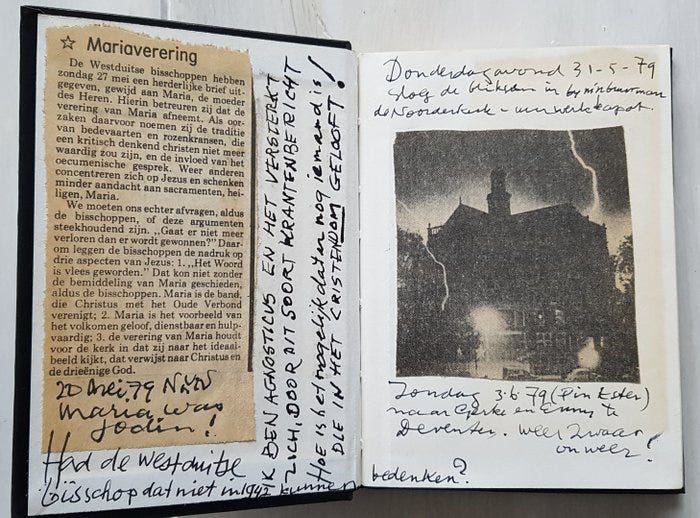 ☆ Mariaverering
De Westduitse bisschoppen hebben
zondag 27 mei een herderlijke brief uit-
gegeven, gewijd aan Maria, de moeder
des Heren. Hierin betreuren zij dat de
verering van Maria afneemt. Als oor-
zaken daarvoor noemen zij de traditie
van bedevaarten en rozenkransen, die
een kritisch denkend christen niet meer
waardig zou zijn, en de invloed van het
oecumenische gesprek. Weer anderen
concentreren zich op Jezus en schenken
minder aandacht aan sacramenten, hei-
ligen, Maria.
We moeten ons echter afvragen, aldus
de bisschoppen, of deze argumenten
steekhoudend zijn. „Gaat er niet meer
verloren dan er wordt gewonnen?" Daar-
om leggen de bisschoppen de nadruk op
drie aspecten van Jezus: 1. „Het Woord
is vlees geworden." Dat kon niet zonder
de bemiddeling van Maria geschieden,
aldus de bisschoppen. Maria is de band,
die Christus met het Oude Verbond
verenigt; 2. Maria is het voorbeeld van
het volkomen geloof, dienstbaar en hulp-
vaardig; 3. de verering van Maria houdt
voor de kerk in dat zij naar het ideaal-
beeld kijkt, dat verwijst naar Christus en
de drieënige God.
Maria was
Jodin!
Had de westduitse
bisschop dat niet in 1942 kunnen
IK BEN AGNOSTICUS EN HET VERSTERKT
ZICH, DOOR DIT SOORT KRANTENBERICHT
HOE is het mogelijk dat er nog iemand is
DIE IN HET CRISTENDOM GELOOFT!
Donderdagavond 31-5-79
sloeg de bliksem in bij m'n buurman
de Noorderkerk - uurwerk kapot.
Zondag 3-6-79 (Pinkster)
naar Gerke en Emmy te
Deventer. weer zwaar
onweer!
bedenken?